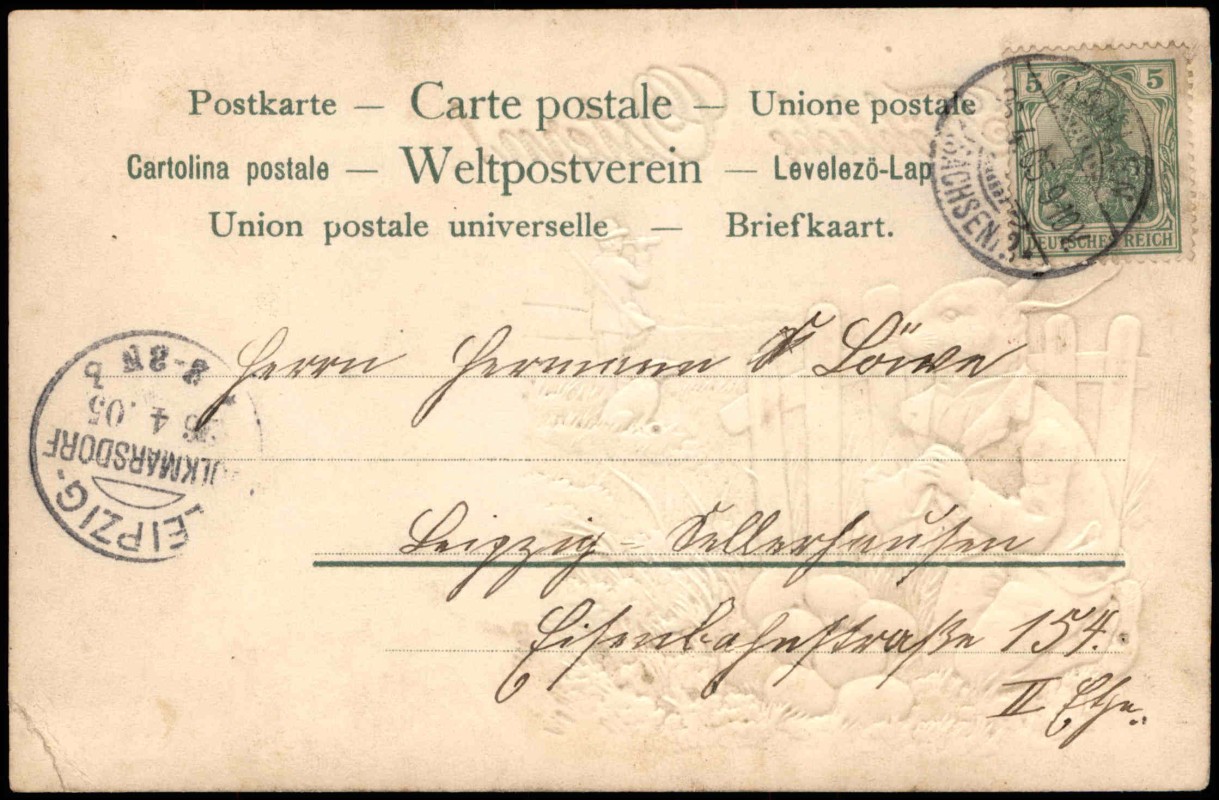 Postkarte — Carte postale — Unione postale
Cartolina postale — Weltpostverein — Levelező-Lap
Union postale universelle — Briefkaart.
5 5
DEUTSCHES REICH
SACHSEN
Herrn Hermann Löwe
Leipzig - Sellerhausen
Eisenbahnstraße 154.
II Etg.
LEIPZIG.
VOLKMARSDORF
4.05